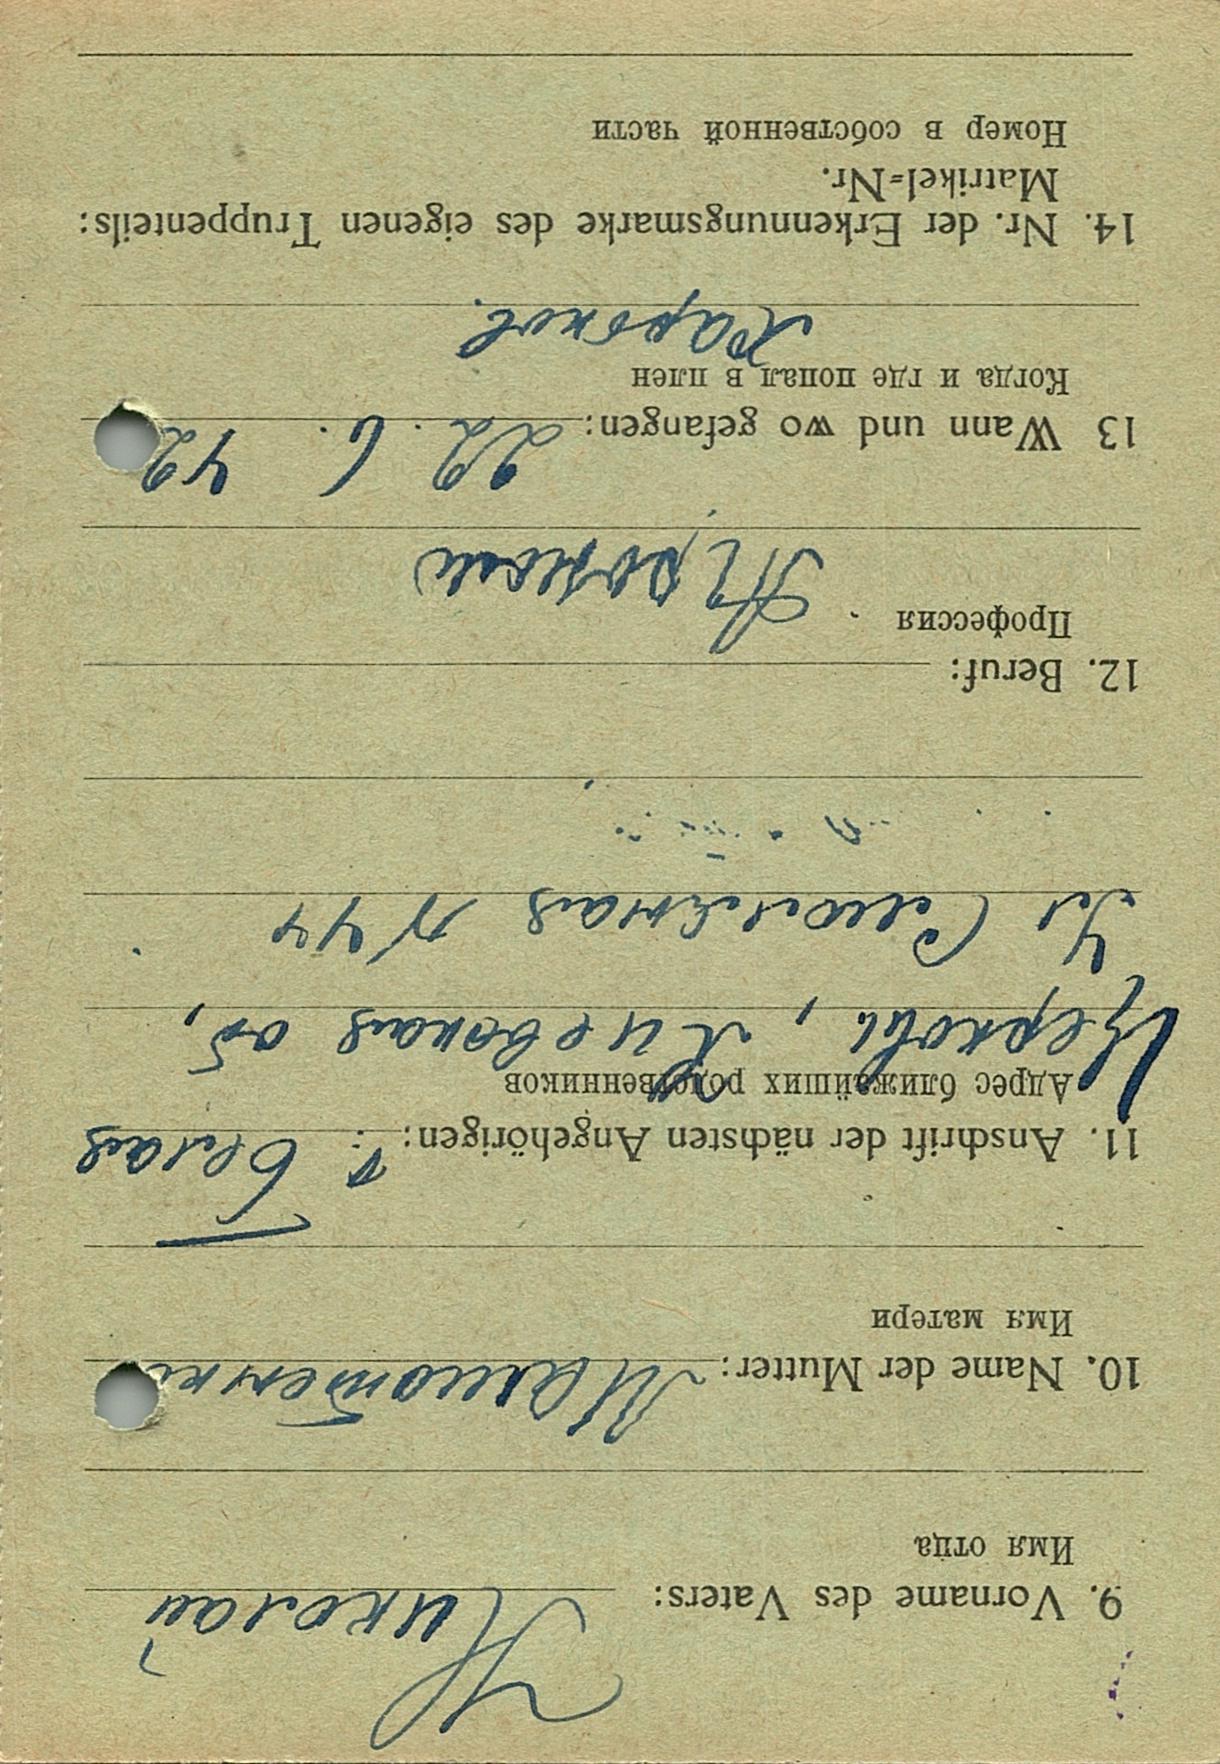 9. Vorname des Vaters: Николай
Имя отца
10. Name der Mutter:
Имя матери
11. Anschrift der nächsten Angehörigen: г. Белая
Адрес ближайших родственников
Церковь, Киевская об,
Ул Смолёная N 44
12. Beruf:
Профессия
Агроном
13 Wann und wo gefangen: 22. 6. 42
Когда и где попал в плен
Харьков.
14. Nr. der Erkennungsmarke des eigenen Truppenteils:
Matrikel=Nr.
Номер в собственной части